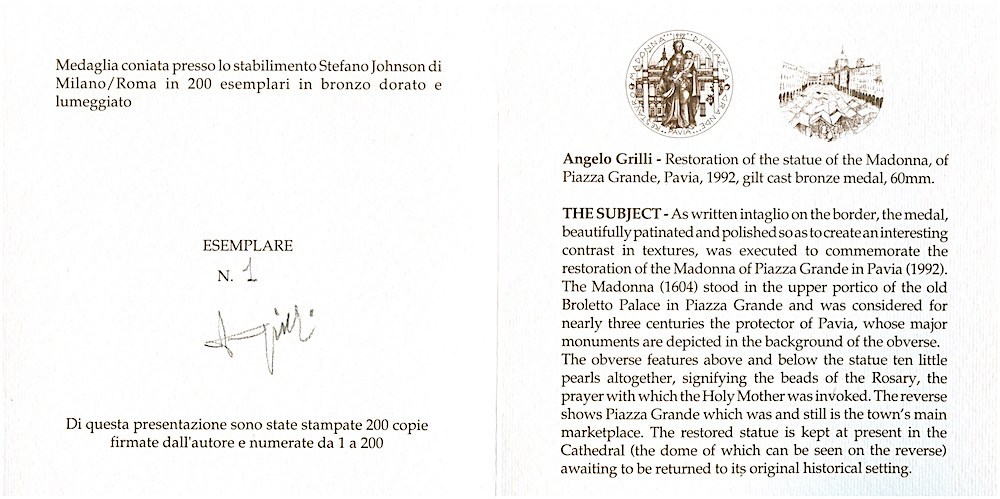 Medaglia coniata presso lo stabilimento Stefano Johnson di
Milano/Roma in 200 esemplari in bronzo dorato e
lumeggiato
ESEMPLARE
N. 1
Di questa presentazione sono state stampate 200 copie
firmate dall'autore e numerate da 1 a 200
RESTAURO MADONNA 1992 DI PIAZZA GRANDE
PAVIA
Angelo Grilli - Restoration of the statue of the Madonna, of
Piazza Grande, Pavia, 1992, gilt cast bronze medal, 60mm.
THE SUBJECT - As written intaglio on the border, the medal,
beautifully patinated and polished so as to create an interesting
contrast in textures, was executed to commemorate the
restoration of the Madonna of Piazza Grande in Pavia (1992).
The Madonna (1604) stood in the upper portico of the old
Broletto Palace in Piazza Grande and was considered for
nearly three centuries the protector of Pavia, whose major
monuments are depicted in the background of the obverse.
The obverse features above and below the statue ten little
pearls altogether, signifying the beads of the Rosary, the
prayer with which the Holy Mother was invoked. The reverse
shows Piazza Grande which was and still is the town's main
marketplace. The restored statue is kept at present in the
Cathedral (the dome of which can be seen on the reverse)
awaiting to be returned to its original historical setting.